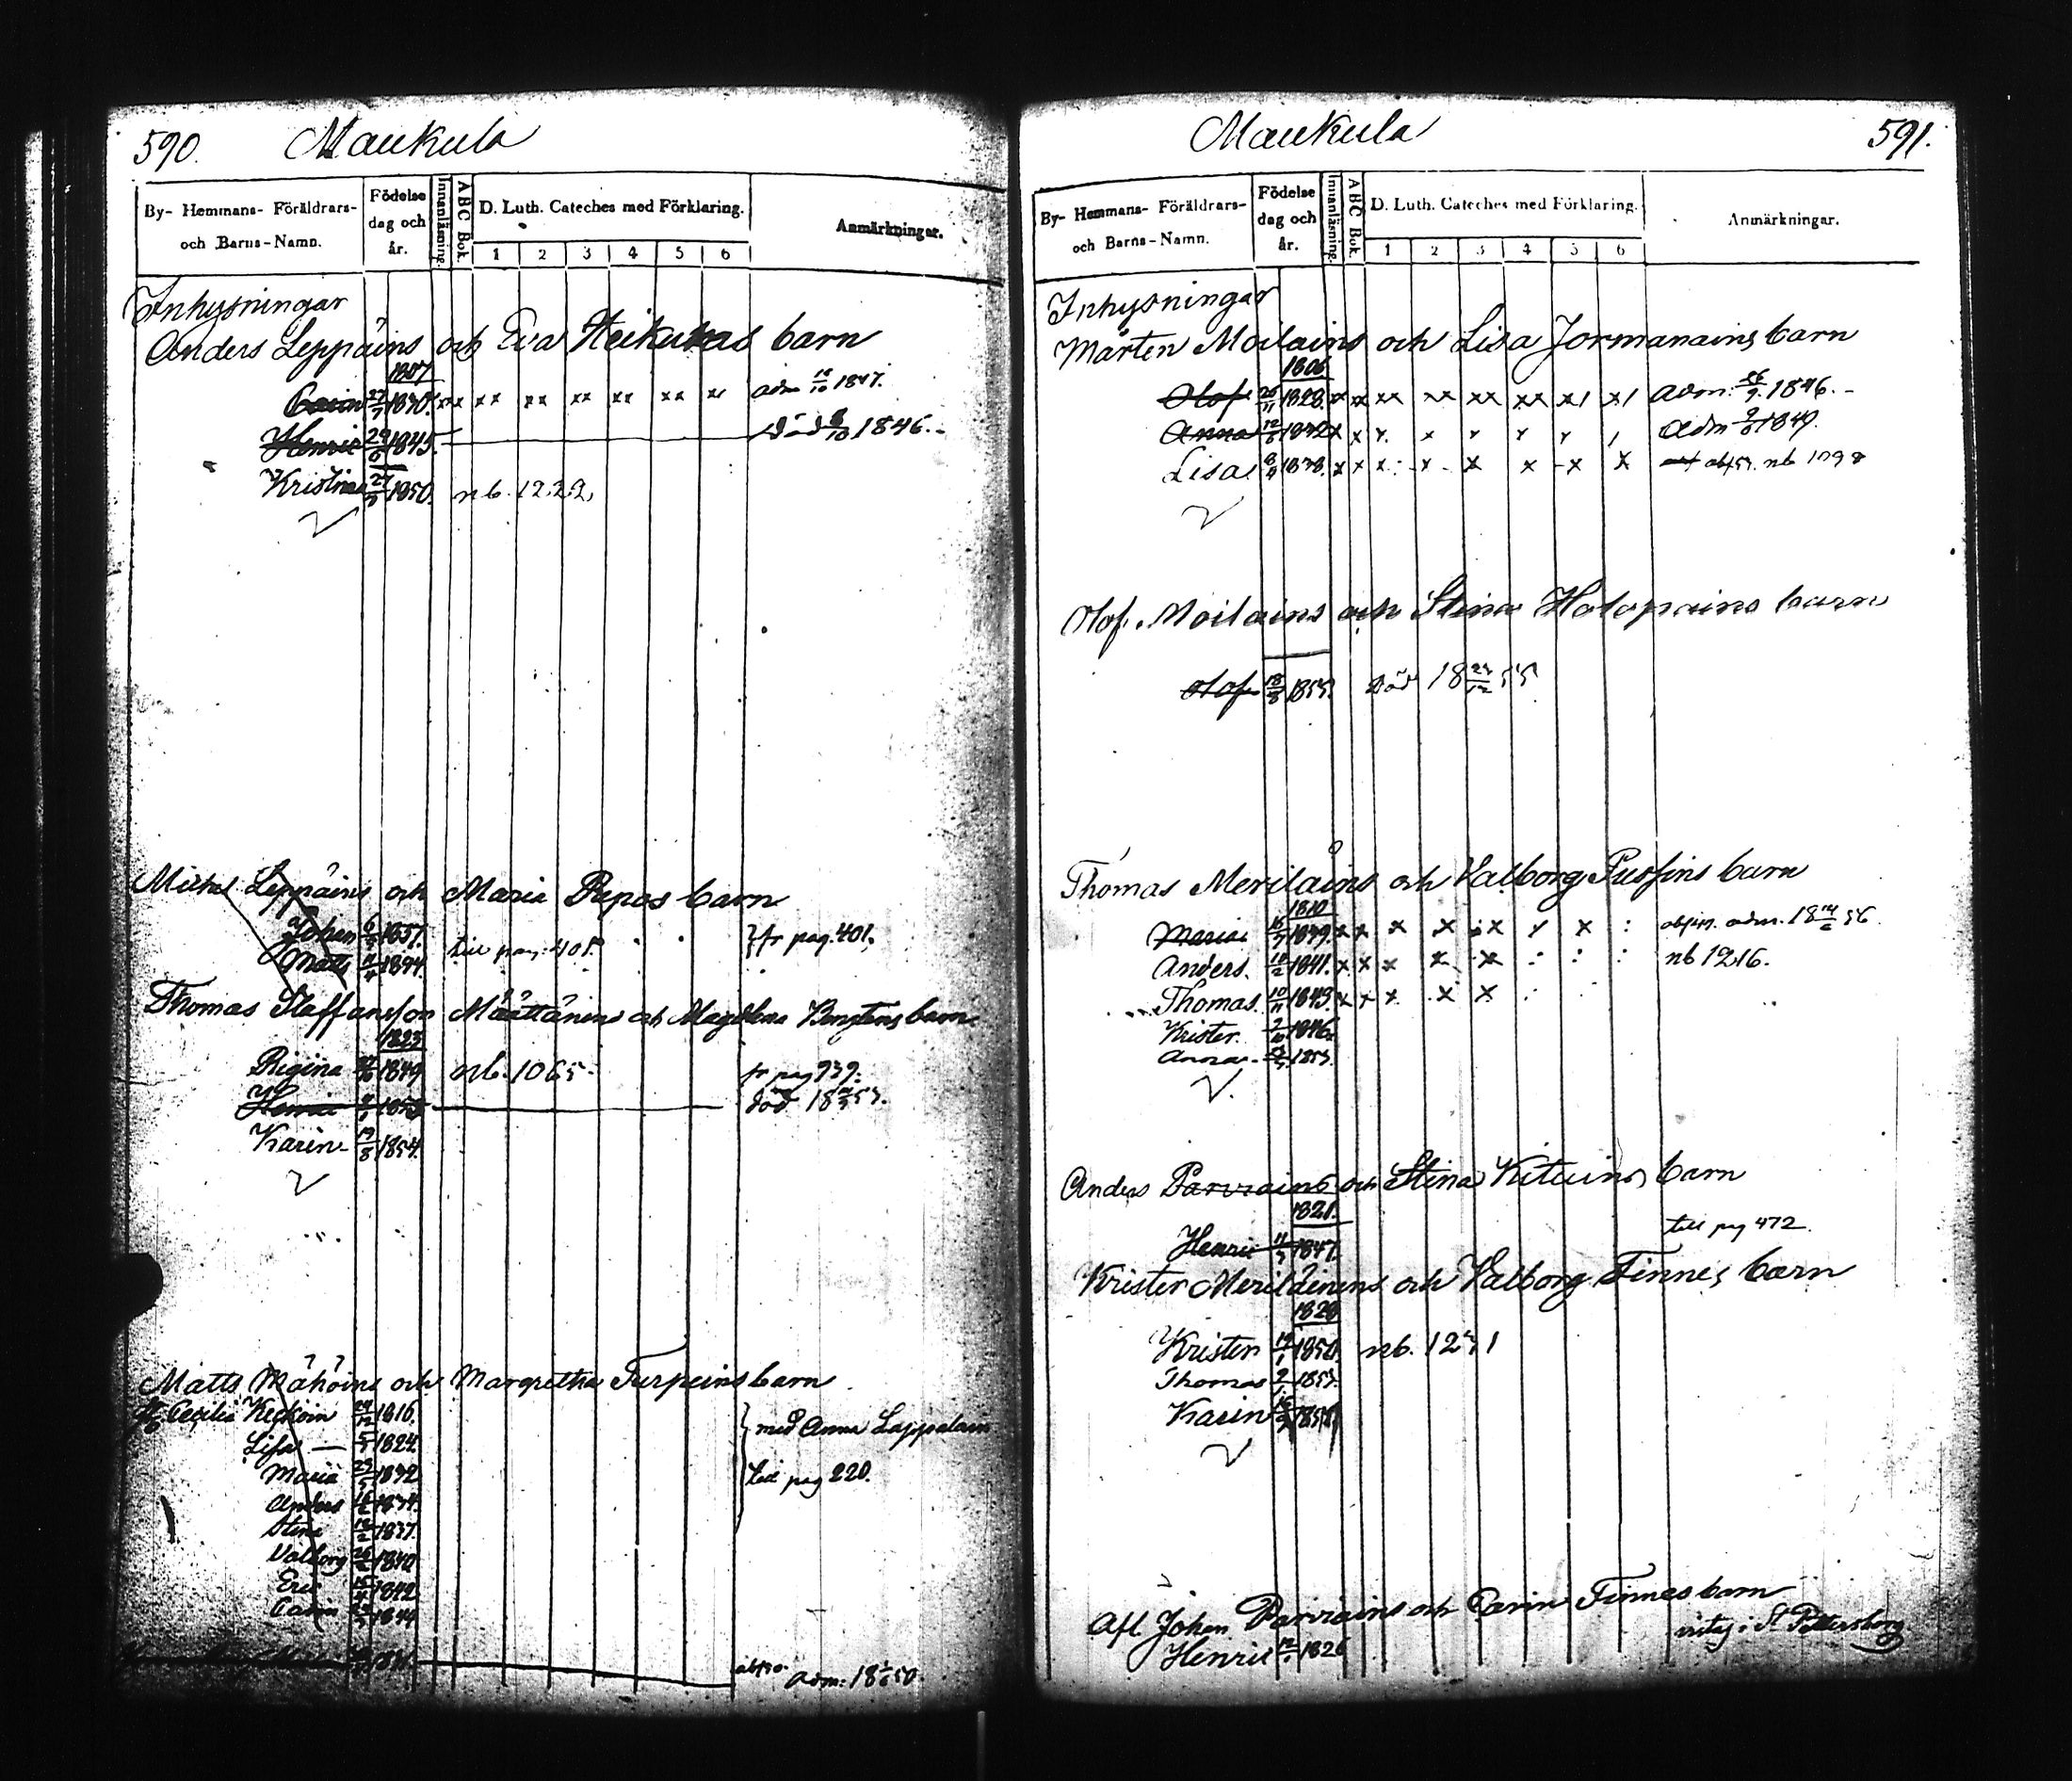 590. Maukula
By- Hemmans- Föräldrars- och Barns-Namn.
Födelse dag och år.
Innanläsning.
ABC Bok.
D. Luth. Cateches med Förklaring.
1 2 3 4 5 6
Anmärkningar.
Inhysningar
Anders Leppäins och Eva Heikuras barn
1807
Carin 1830. xx xx xx xx xx xx adm 1847.
Henric 29/6 1845. död 8/10 1846.
Kristina 1850. nb. 1222,
Michel Leppäins och Maria Repos barn
Johan 1857. till pag. 401. fr pag. 401.
Matts
Thomas Staffansson Määttänens och Magdlena barn
1823
Regina 1849 nb. 1065 fr pag 939.
Henric 1853 död
Karin 19/8 1854.
Matts Mähöins och Margretha Turpeins barn
Cecilia 1816. med Anna Lappalain
Lisa 1824.
Maria 1832 till pag 220.
Anders 1834.
Stina 1837.
Valborg 1840
Eric 1842
Carin 1844
adm: 18 50.
Maukula 591.
By- Hemmans- Föräldrars- och Barns-Namn.
Födelse dag och år.
Innanläsning.
ABC Bok.
D. Luth. Cateches med Förklaring.
1 2 3 4 5 6
Anmärkningar.
Inhysningar
Mårten Moilains och Lisa Jormanains barn
1806
Olof 1828. x xx xx xx xx xx adm. 1846.
Anna 1832 x x adm 1849.
Lisa 1838. x x x x x x x x nb 1098
Olof Moilains och Stina Holopains barn
Olof 1855. död 18 55
Thomas Meriläins och Valborg Pussins barn
1810
Maria 1839. x x x x x x adm. 18 56.
Anders. 1841. x x x x x nb 1216.
Thomas. 10/11 1843. x x x x x
Krister. 1846.
Anna 1853.
Anders Parviains och Stina Kiteins barn
1821.
till pag 472.
Henric 1847.
Krister Meriläinens och Valborg Finnes barn
1828
Krister 1850. nb. 1231
Thomas 1853.
Karin
Afl. Johan Parviains och Carin Finnes barn
Henric 1826 i St Pettersborg